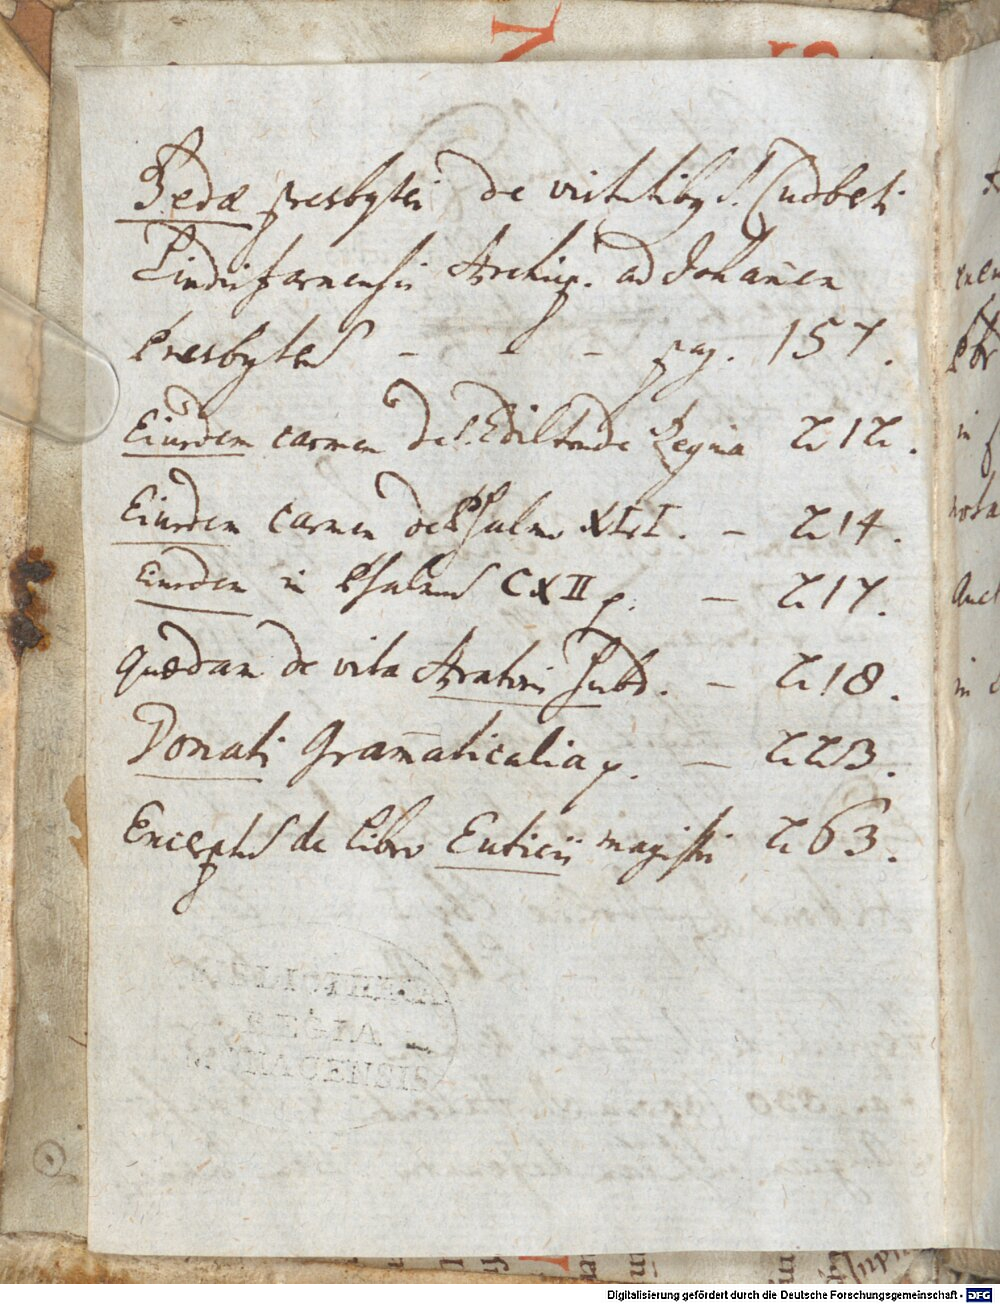 Bedæ presbyteri de virtutibg S. Cudbeti
Lindisfarnensis Archiep. ad Johan̄en
Presbyterũ - - - pag. 157.
Eiusdem carmen de S. Ediltrude Regina 212.
Eiusdem Carmen de Psalmo XLI. - 214.
Eiusdem in Psalmũ CXII p. - 217.
quædam de vita Aratoris Subd. - 218.
Donati Gram̄aticalia p. - 223.
Excerptũ de libro Euticii magistri 263.
Digitalisierung gefördert durch die Deutsche Forschungsgemeinschaft - DFG